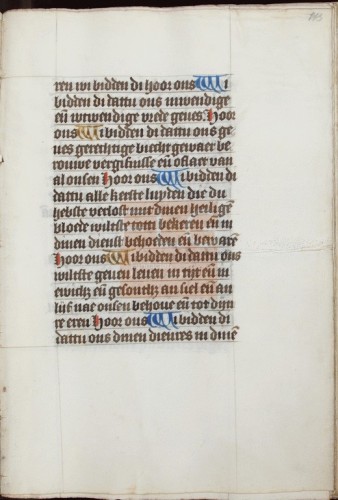 ren wi bidden di hoor ons Wi
bidden di dattu ons inwendige
en wtwendige vrede geues. Hoor
ons Wi bidden di dattu ons ge
ues gerechtige biecht gewaer be
rouwe vergifnisse en aflaet van
al onsen Hoor ons Wi bidden di
dattu alle kerste luyden die du
hebste verlost mit dinen heiligē
bloede wilste totti bekeren eñ in
dinen dienst behoeden eñ bewarē
Hoor ons Wi bidden di dattu ons
wilste geuen leuen in tijt eñ in
ewich eñ gesontheit an siel eñ an
lijf nae onsen behoue eñ tot dijn
re eren Hoor ons Wi bidden di
dattu ons dinen dienres in dinē